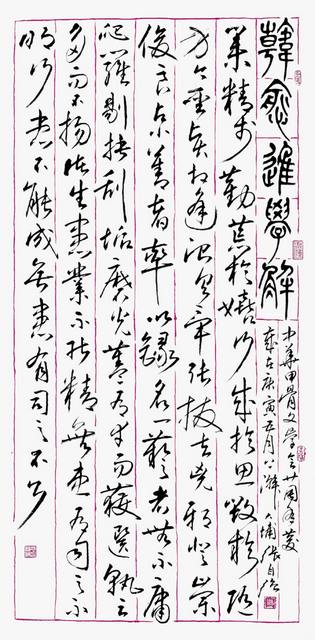 韓愈進學解
業精於勤荒於嬉行成於思毀於隨
方今聖賢相逢治具畢張拔去兇邪登崇
俊良占小善者率以錄名一藝者無不庸
爬羅剔抉刮垢磨光蓋有幸而獲選孰云
多而不揚諸生患業不能精無患有司之不
明行患不能成無患有司之不公
中華甲骨文學會廿周年慶
歲在庚寅五月 大埔張自